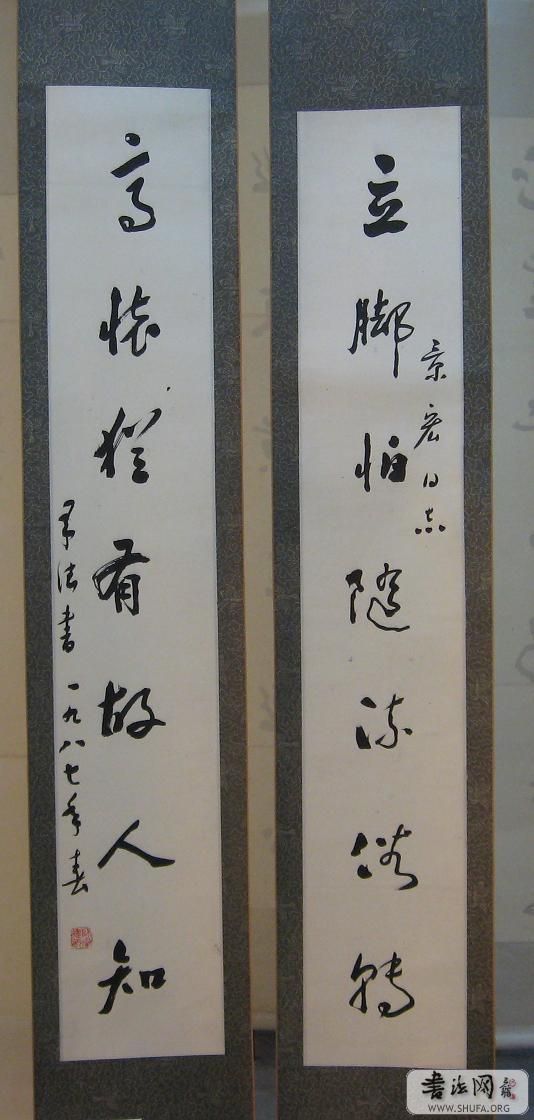 立脚怕随流俗转
景宏同志
高怀犹有故人知
一九八七年春
书法网
WWW.SHUFA.ORG